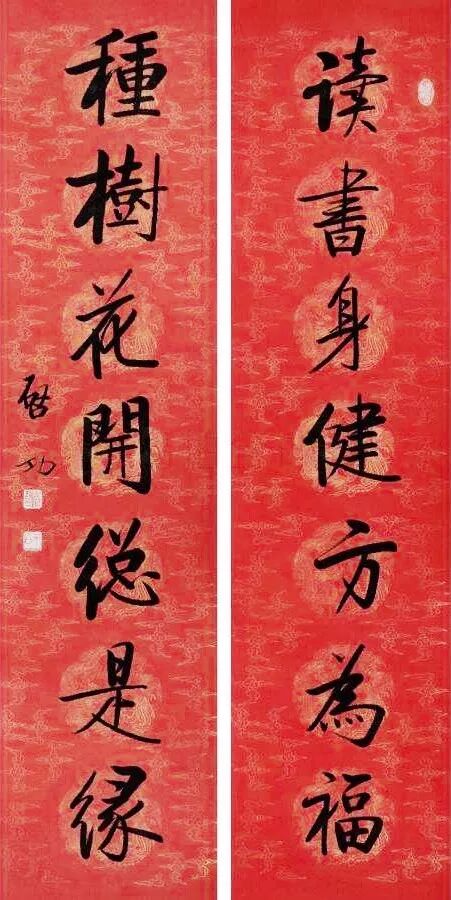 读书身健方為福
種樹花開總是缘
啓功